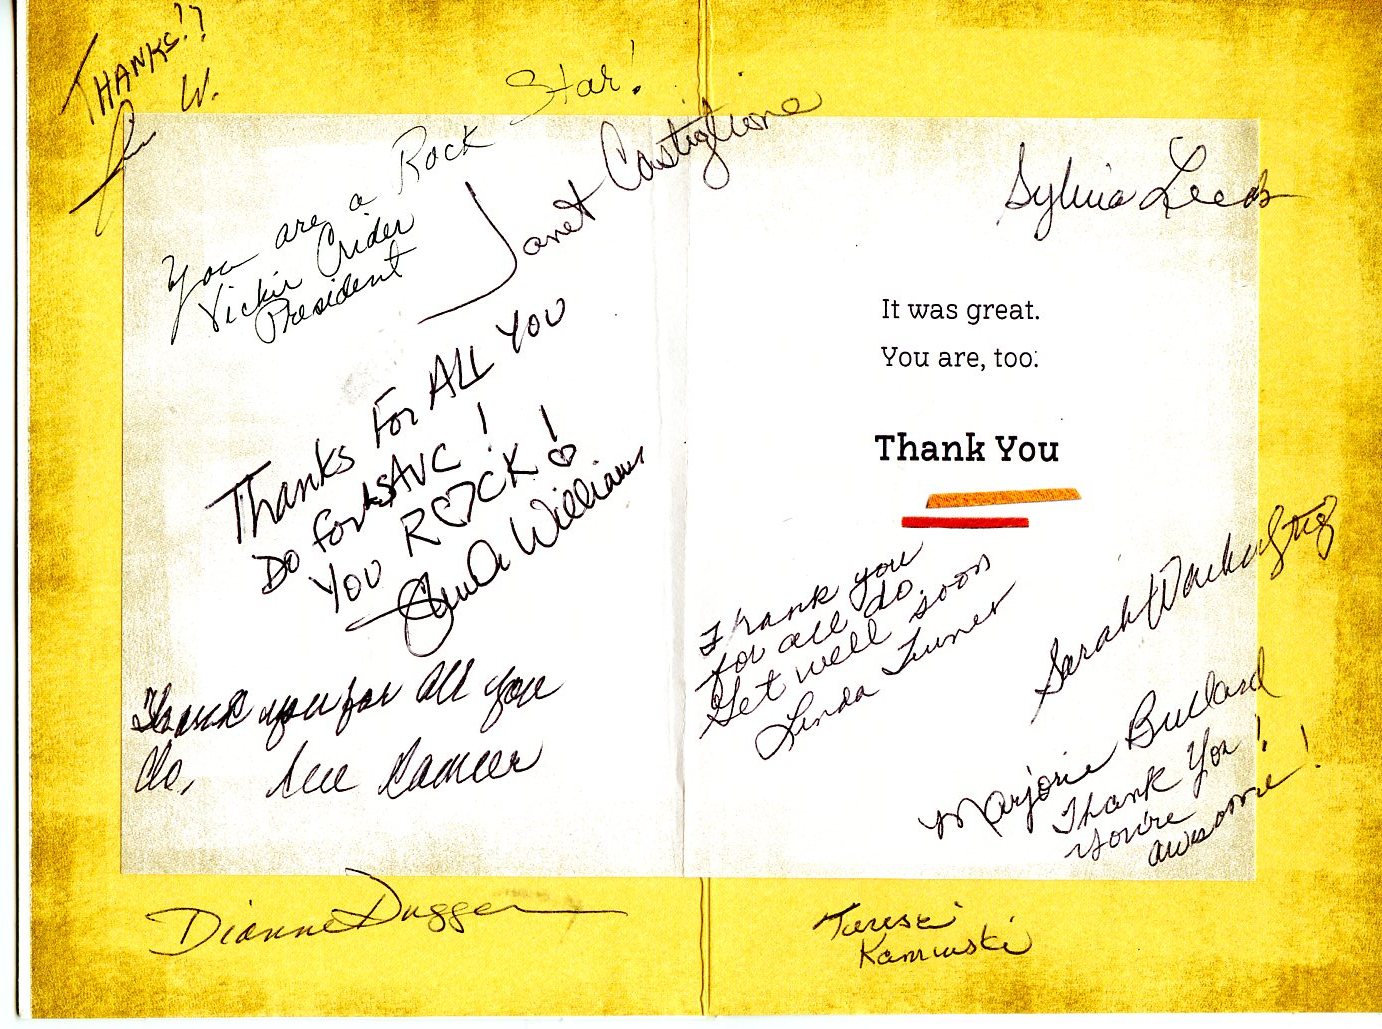 THANKS!!
W.
You are a Rock Star!
Vickie Crider
President
Janet Castiglione
Thanks For ALL YOU
DO for SAVC!
YOU ROCK!
Williams
Thank you for all you
do. Sue
Dianne Duggan
Sylvia Leeds
It was great.
You are, too.
Thank You
Thank you
for all do.
Get well soon
Linda Turner
Sarah
Marjorie Bullard
Thank You!
You're
awesome!
Kaminski